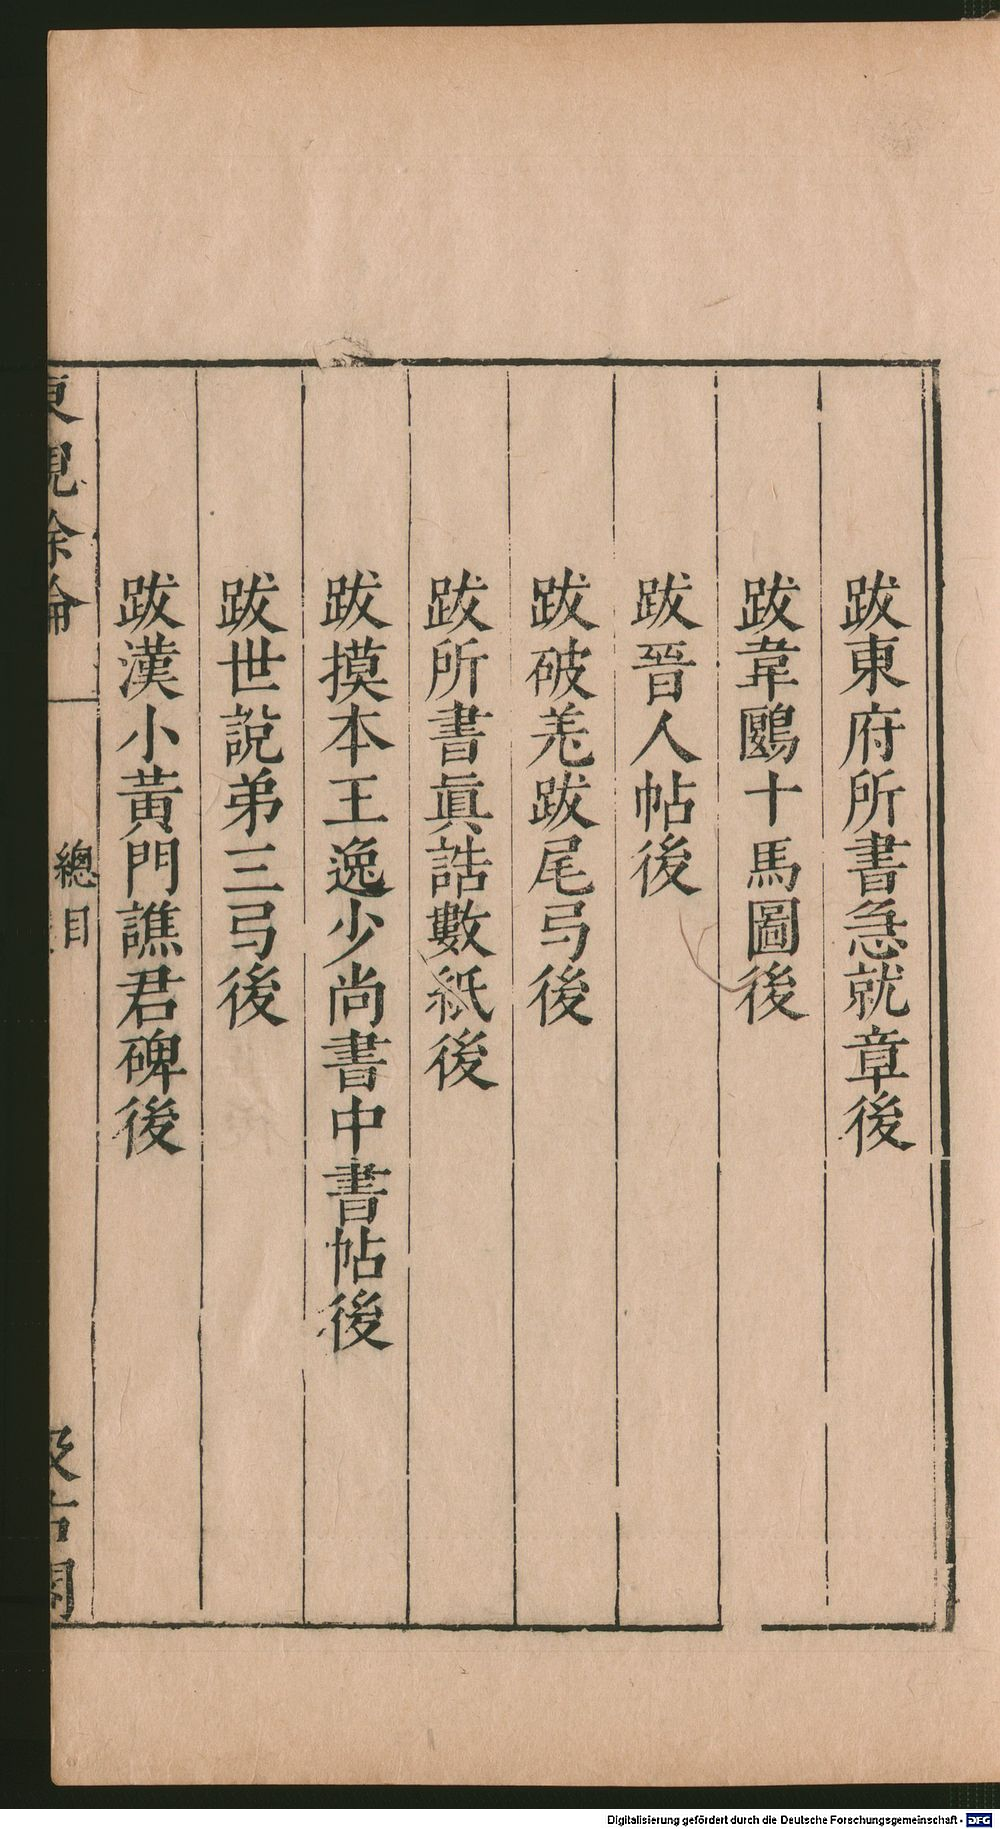 跋東府所書急就章後
跋韋鷗十馬圖後
跋晉人帖後
跋破羌跋尾弓後
跋所書眞誥數紙後
跋摸本王逸少尚書中書帖後
跋世說弟三弓後
跋漢小黃門譙君碑後
東觀餘論
總目
汲古閣
Digitalisierung gefördert durch die Deutsche Forschungsgemeinschaft - DFG